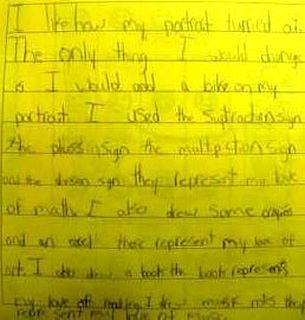 I like how my portrait turned out.
The only thing I would change
is I would add a bike on my
portrait I used the subtraction sign
the pluss sign the multiplation sign
and the divison sign they represent my love
of math. I also drew some crayons
and an easel these represent my love of
art. I also drew a book the book represents
my love of reading I drew music nots they
represent my love of music.